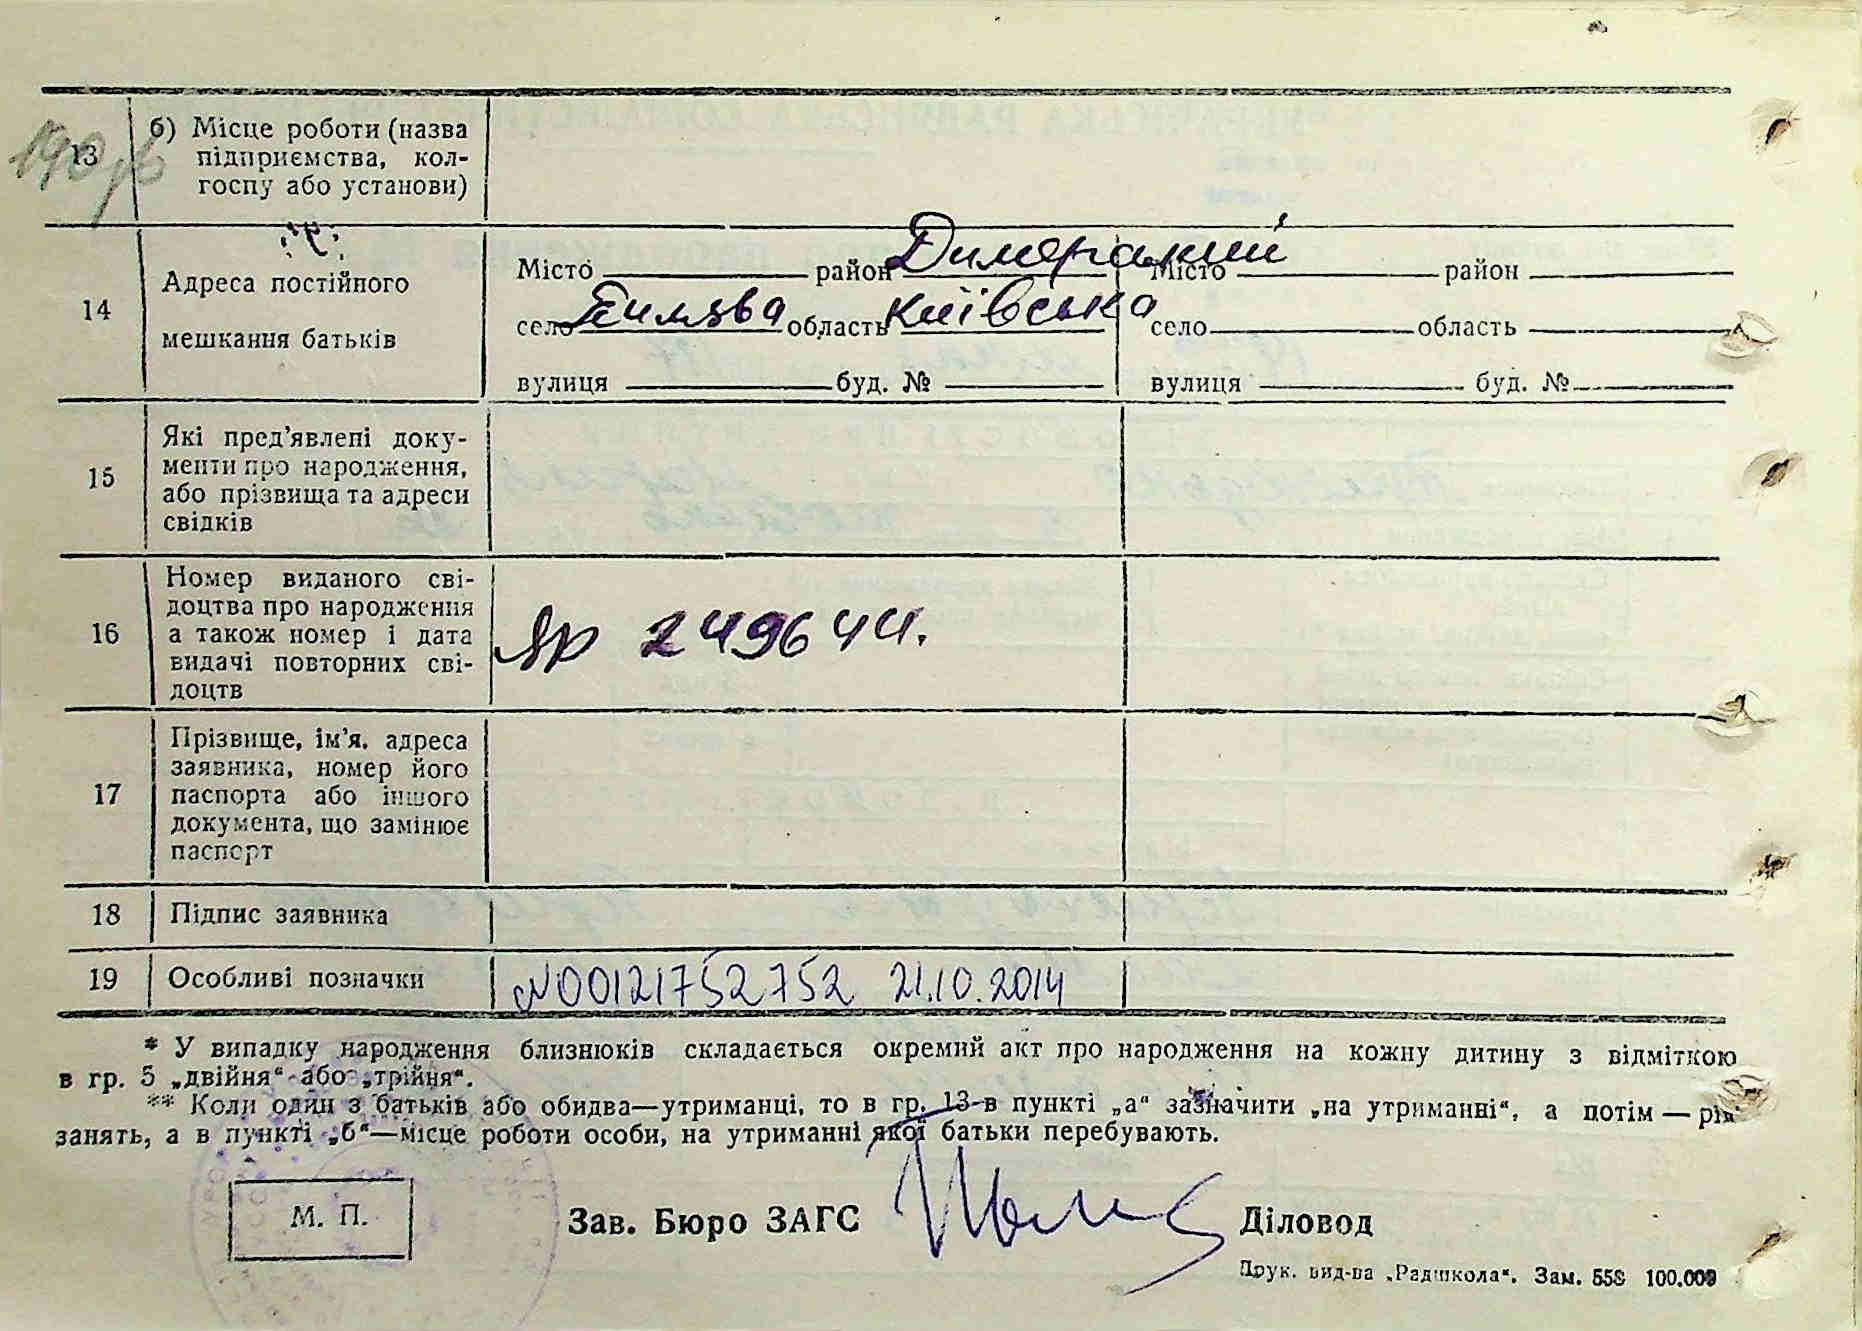 190 зв
13 б) Місце роботи (назва
підприємства, кол-
госпу або установи)
14 Адреса постійного
мешкання батьків
Місто район Димерський Місто район
село область Київська село область
вулиця буд. № вулиця буд. №
15 Які пред'явлені доку-
менти про народження,
або прізвища та адреси
свідків
16 Номер виданого сві-
доцтва про народження
а також номер і дата
видачі повторних сві-
доцтв
ЯР 249644.
17 Прізвище, ім'я, адреса
заявника, номер його
паспорта або іншого
документа, що замінює
паспорт
18 Підпис заявника
19 Особливі позначки N00121752752 21.10.2014
* У випадку народження близнюків складається окремий акт про народження на кожну дитину з відміткою
в гр. 5 „двійня“ або „трійня“.
** Коли один з батьків або обидва—утриманці, то в гр. 13-в пункті „а“ зазначити „на утриманні“, а потім — рід
занять, а в пункті „б“—місце роботи особи, на утриманні якої батьки перебувають.
М. П.
Зав. Бюро ЗАГС Діловод
Друк. вид-ва „Радшкола“. Зам. 558 100.000